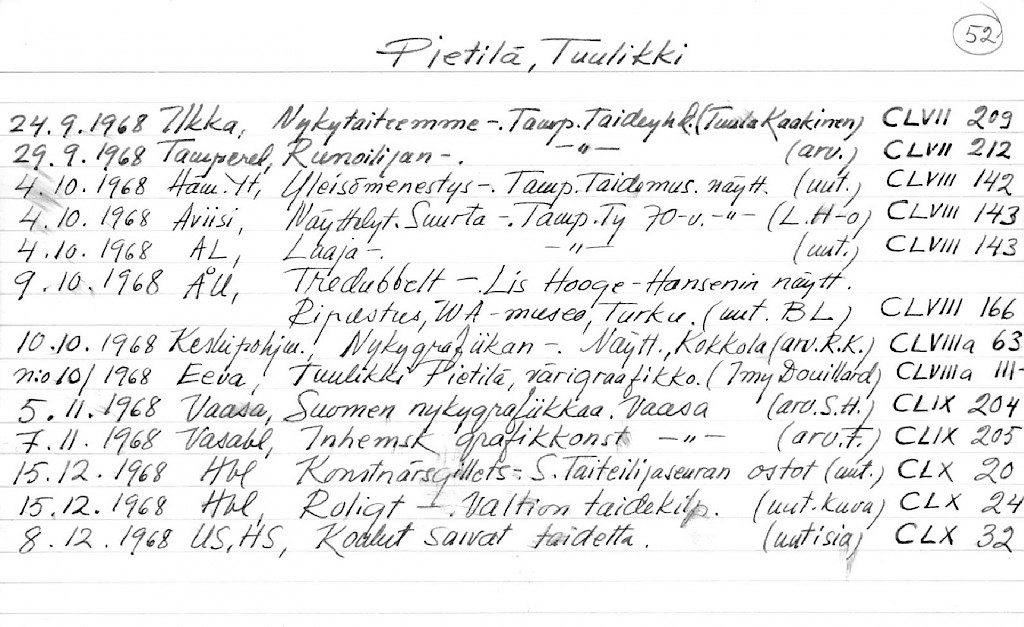 52
Pietilä, Tuulikki
24.9.1968 Ilkka, Nykytaiteemme -. Tamp. Taideyhd. (Tuula Kaakinen) CLVII 209
29.9.1968 Tamperel, Runoilijan -. -"- (arv.) CLVII 212
4.10.1968 Häm. Yt, Yleisömenestys -. Tamp. Taidemus. näytt. (uut.) CLVIII 142
4.10.1968 Aviisi, Näyttelyt. Suurta -. Tamp. Ty 70-v. -"- (L.H-o) CLVIII 143
4.10.1968 AL, Laaja -. -"- (uut.) CLVIII 143
9.10.1968 ÅU, Tredubbelt -. Lis Hooge-Hansenin näytt.
Ripustus, WA-museo, Turku. (uut. BL) CLVIII 166
10.10.1968 Keskipohjm., Nykygrafiikan -. Näytt., Kokkola (arv. R.K.) CLVIIIa 63
n:o 10/1968 Eeva, Tuulikki Pietilä, värigraafikko. (Imy Douillard) CLVIIIa III-
5.11.1968 Vaasa, Suomen nykygrafiikkaa. Vaasa (arv. S.H.) CLIX 204
7.11.1968 Vasabl, Inhemsk grafikkonst -"- (arv. F.) CLIX 205
15.12.1968 Hbl Konstnärsgillets -. S. Taiteilijaseuran ostot (uut.) CLX 20
15.12.1968 Hbl, Roligt -. Valtion taidekilp. (uut. kuva) CLX 24
8.12.1968 US, HS, Koulut saivat taidetta. (uutisia) CLX 32